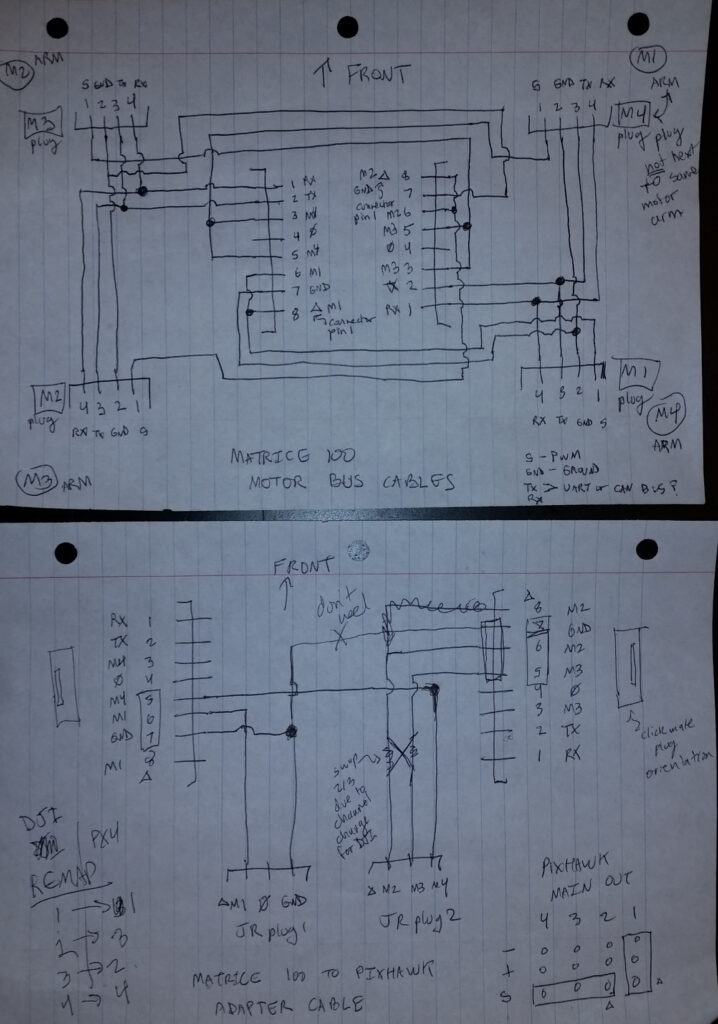 M2 ARM
S GND TX RX
1 2 3 4
M3
plug
↑ FRONT
M1
ARM
S GND TX RX
1 2 3 4
M4
plug plug
not next
to same
motor
arm
1 RX
2 TX
3 M4
4 Ø
5 M4
6 M1
7 GND
8 △ M1
connector
pin 1
M2 △ 8
GND 7
connector
pin 1 M2 6
M3 5
Ø 4
M3 3
TX 2
RX 1
M2
plug
4 3 2 1
RX TX GND S
M3 ARM
4 3 2 1
RX TX GND S
M1
plug
M4
ARM
MATRICE 100
MOTOR BUS CABLES
S - PWM
GND - GROUND
TX > UART or CAN BUS?
RX
FRONT
↑
don't
need
RX 1
TX 2
M4 3
Ø 4
M4 5
M1 6
GND 7
M1 8
△
△
8 M2
7 GND
6 M2
5 M3
4 Ø
3 M3
2 TX
1 RX
clickmate
plug
orientation
swap
2/3
due to
channel
change
for DJI
△M1 Ø GND
JR plug 1
△ M2 M3 M4
JR plug 2
DJI PX4
REMAP
1 → 1
2 → 3
3 → 2
4 → 4
MATRICE 100 TO PIXHAWK
ADAPTER CABLE
PIXHAWK
MAIN OUT
4 3 2 1
-
+
S